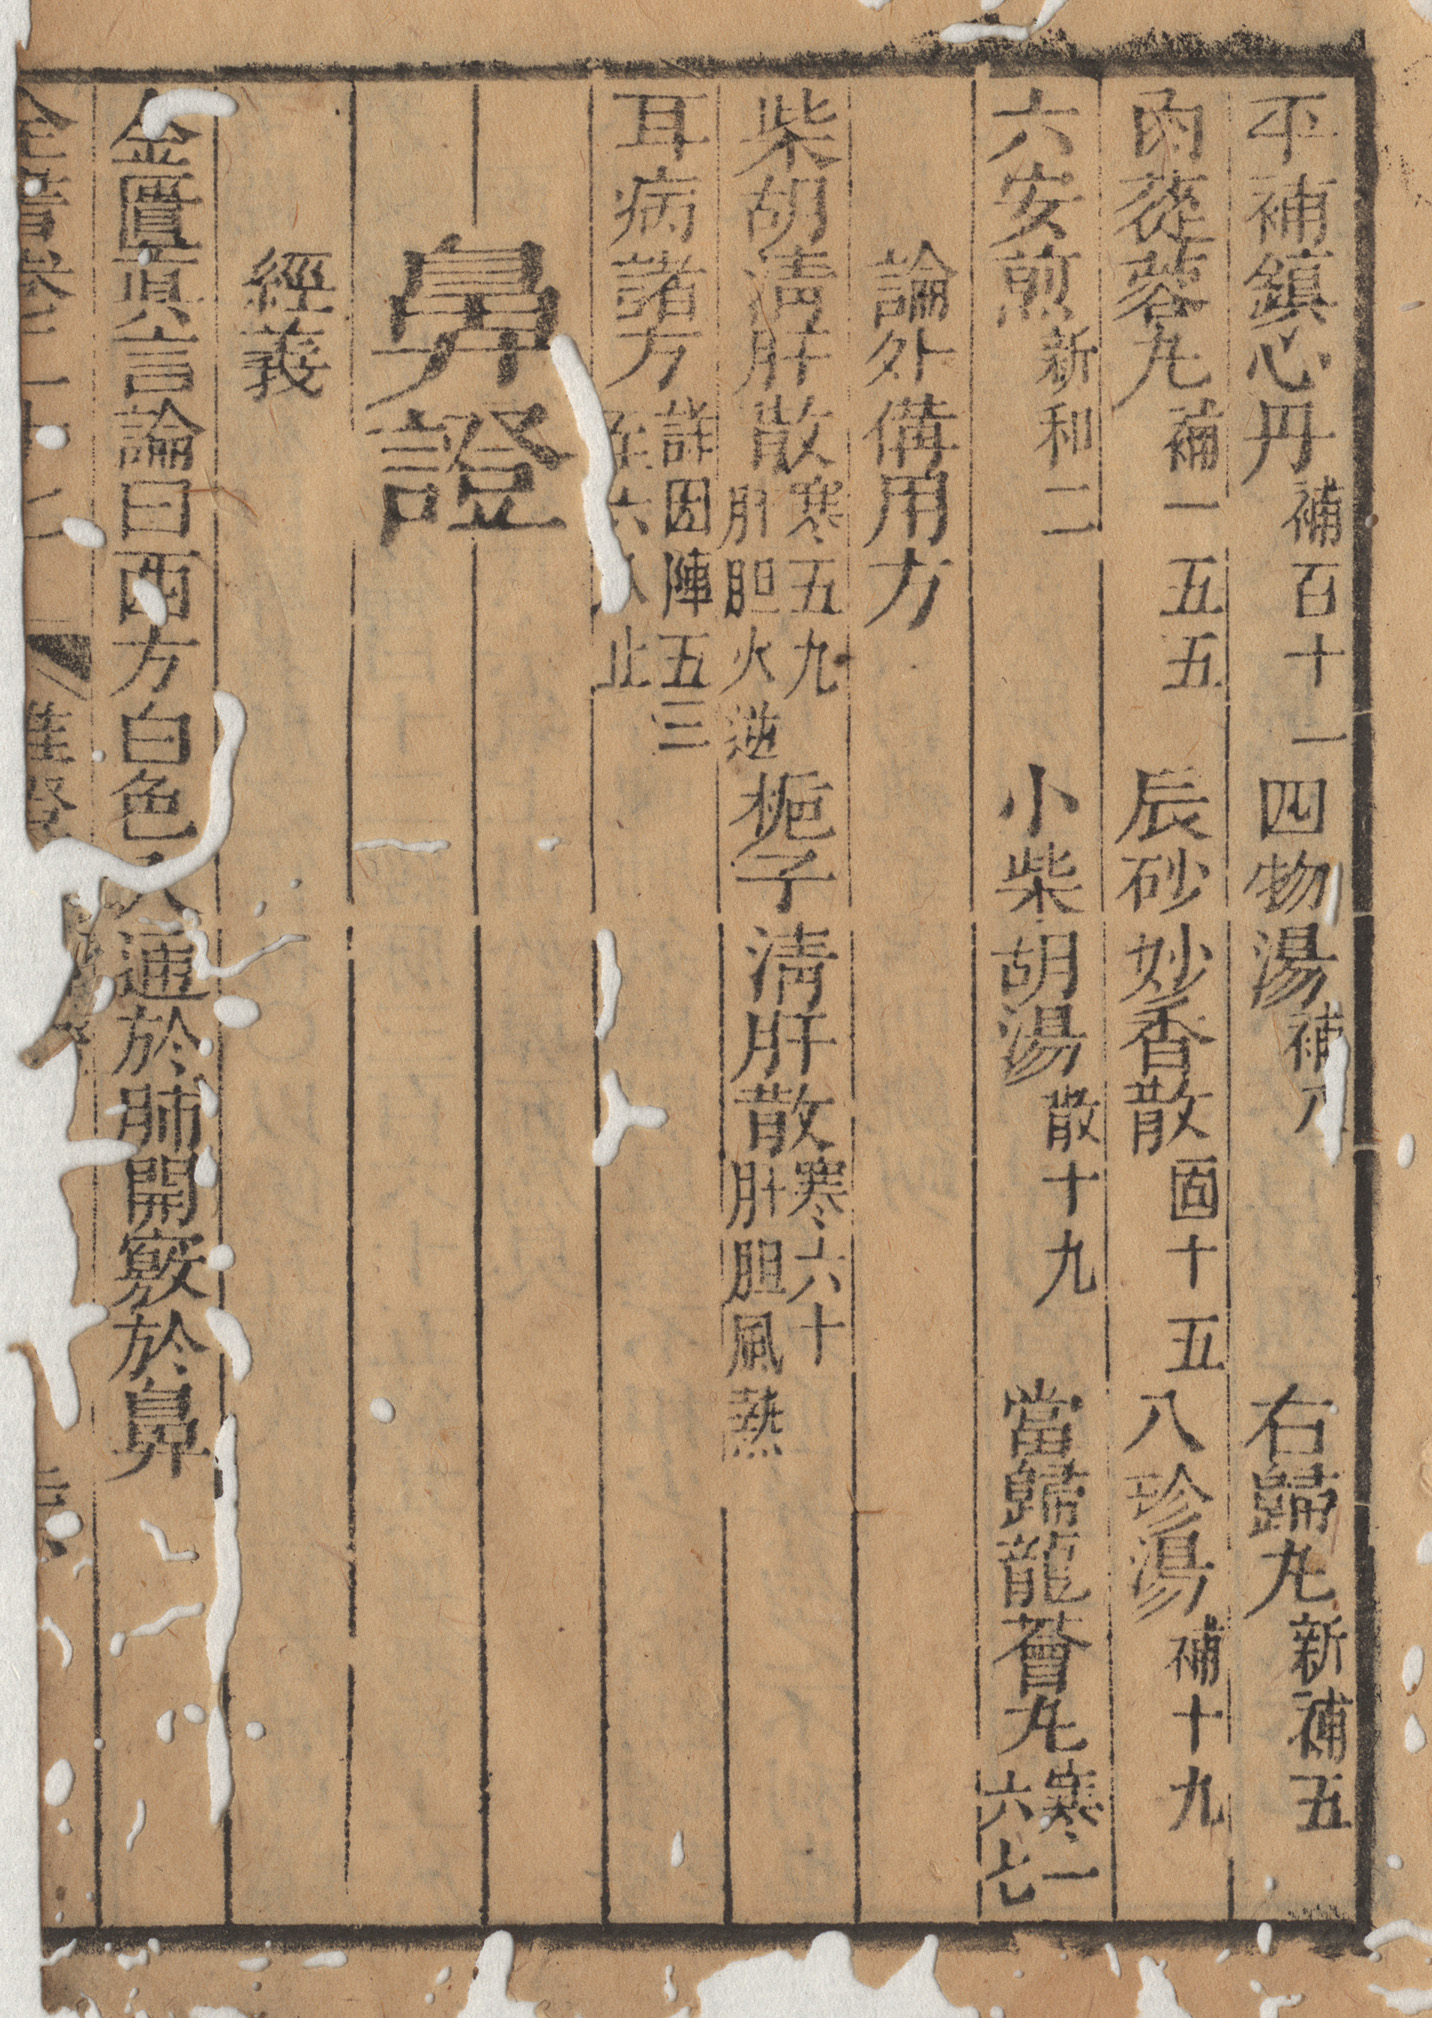 平補鎮心丹補百十一四物湯補八右歸丸新補五
肉蓯蓉丸補一五五辰砂妙香散固十五八珍湯補十九
六安煎新和二小柴胡湯散十九當歸龍薈丸寒一六七
論外備用方
柴胡清肝散寒五九肝胆火逆梔子清肝散寒六十肝胆風熱
耳病諸方詳因陣五三 六 止
鼻證
經義
金匱真言論曰西方白色入通於肺開竅於鼻
全書卷二十七